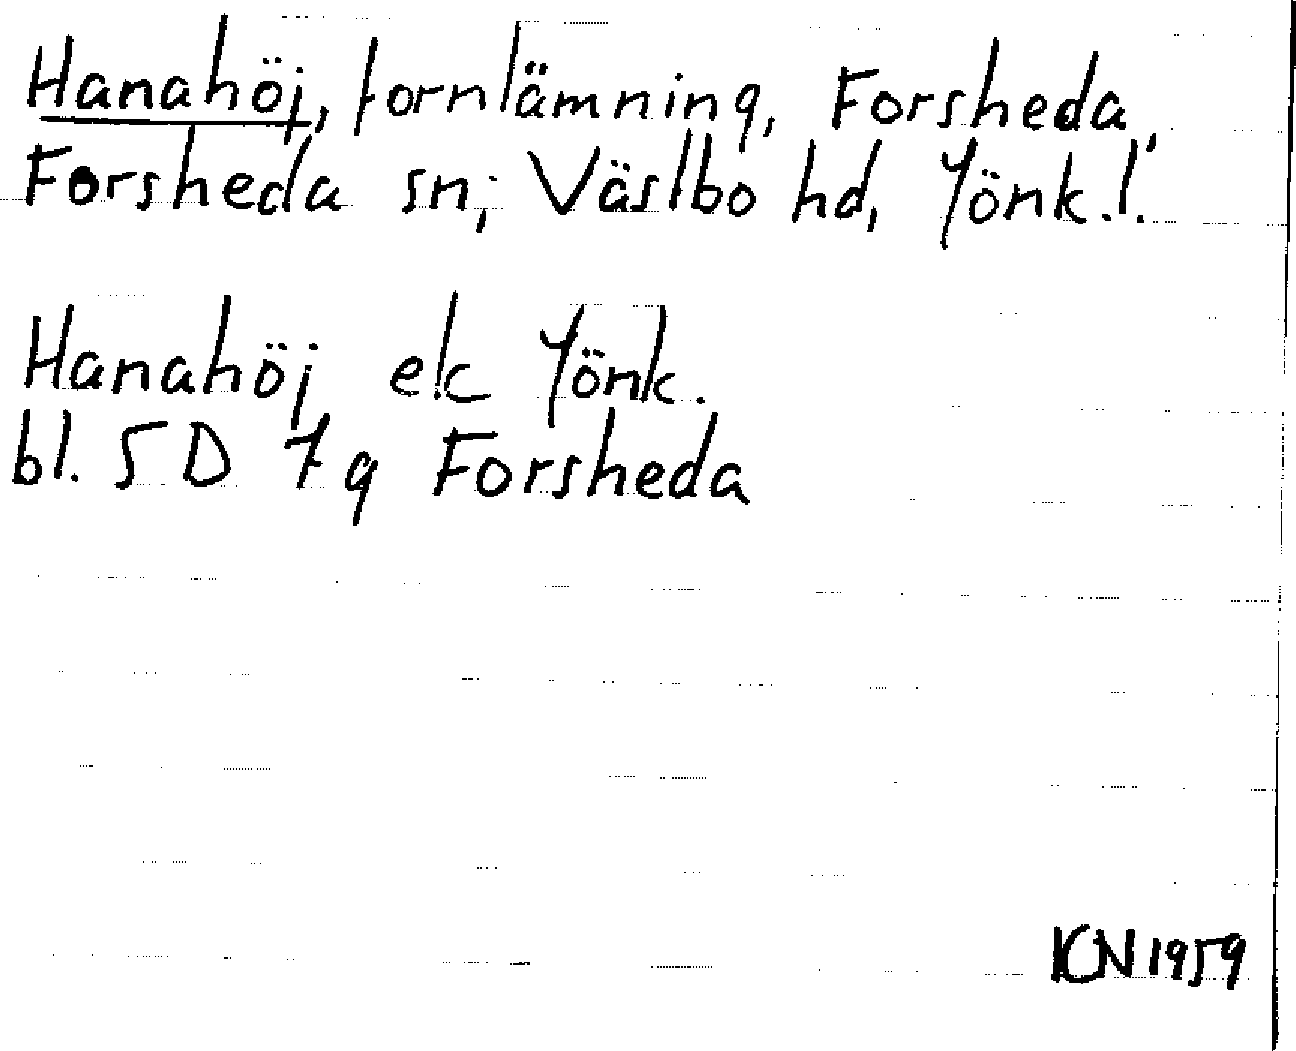 Hanahöj, fornlämning, Forsheda,
Forsheda sn, Västbo hd, Jönk.l.
Hanahöj ek Jönk.
bl. 5D 7g Forsheda
KN 1959